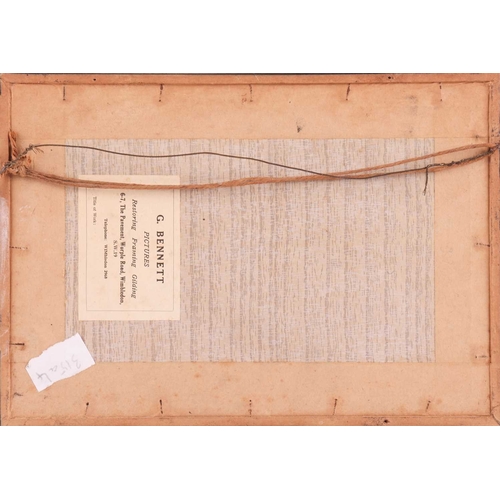 G. BENNETT
PICTURES
Restoring Framing Gilding
6-7, The Pavement, Worple Road, Wimbledon,
S.W.19
Telephone: WIMbledon 2948
Title of Work: